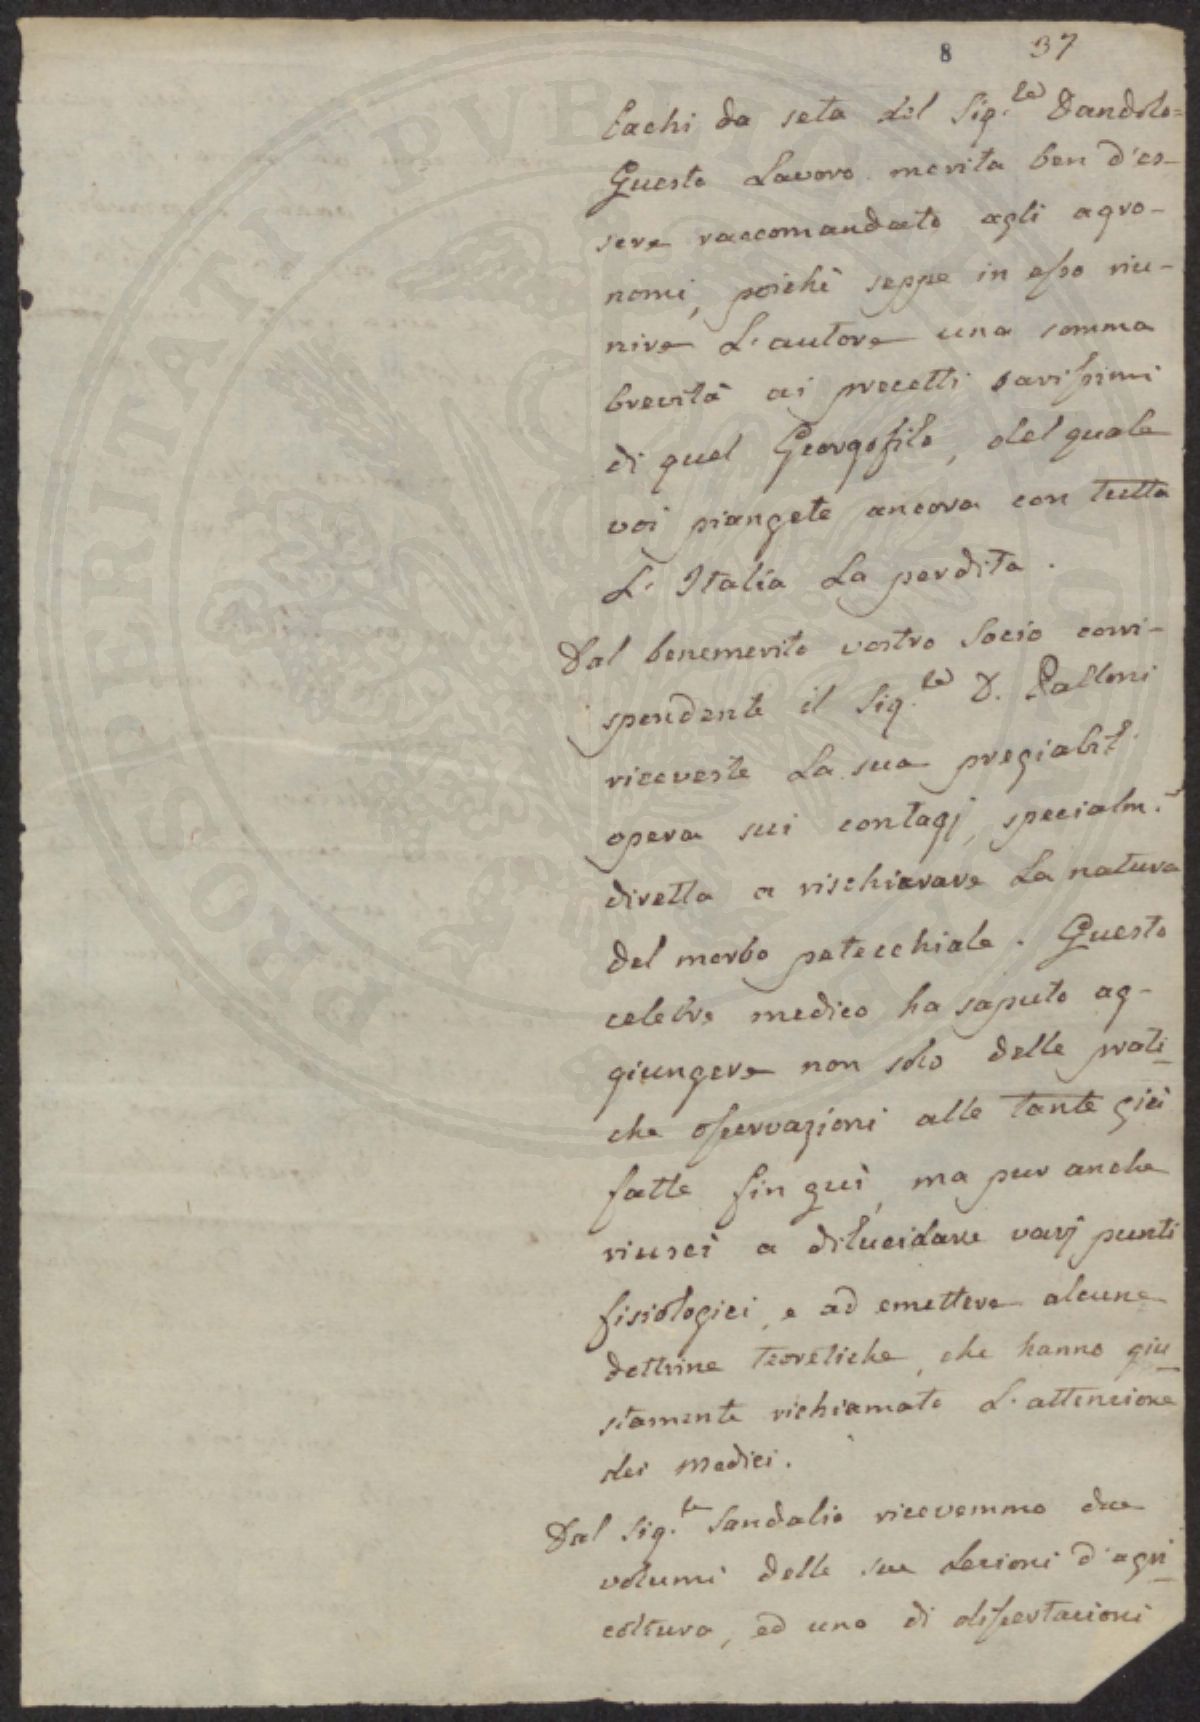 8 37
bachi da seta del Sig.re Dandolo=
Questo Lavoro merita ben d'es-
sere raccomandato agli agro-
nomi, poichè seppe in esso riu-
nire L'autore una somma
brevità ai precetti savissimi
di quel Georgofilo, del quale
voi piangete ancora con tutta
L'Italia La perdita.
Dal benemerito vostro Socio corri-
spondente il Sig.re D. Palloni
riceveste La sua pregiabil.
opera sui contagj, specialm.e
diretta a rischiarare La natura
del morbo petecchiale. Questo
celebre medico ha saputo ag-
giungere non solo delle prati-
che osservazioni alle tante già
fatte fin quì, ma pur anche
riuscì a dilucidare varj punti
fisiologici, e ad emettere alcune
dottrine teoretiche, che hanno giu-
stamente richiamato L'attenzione
dei medici.
Dal Sig.re Sandalio ricevemmo due
volumi delle sue Lezioni d'agri-
coltura, ed uno di dissertazioni
PROSPERITATI PVBLICAE